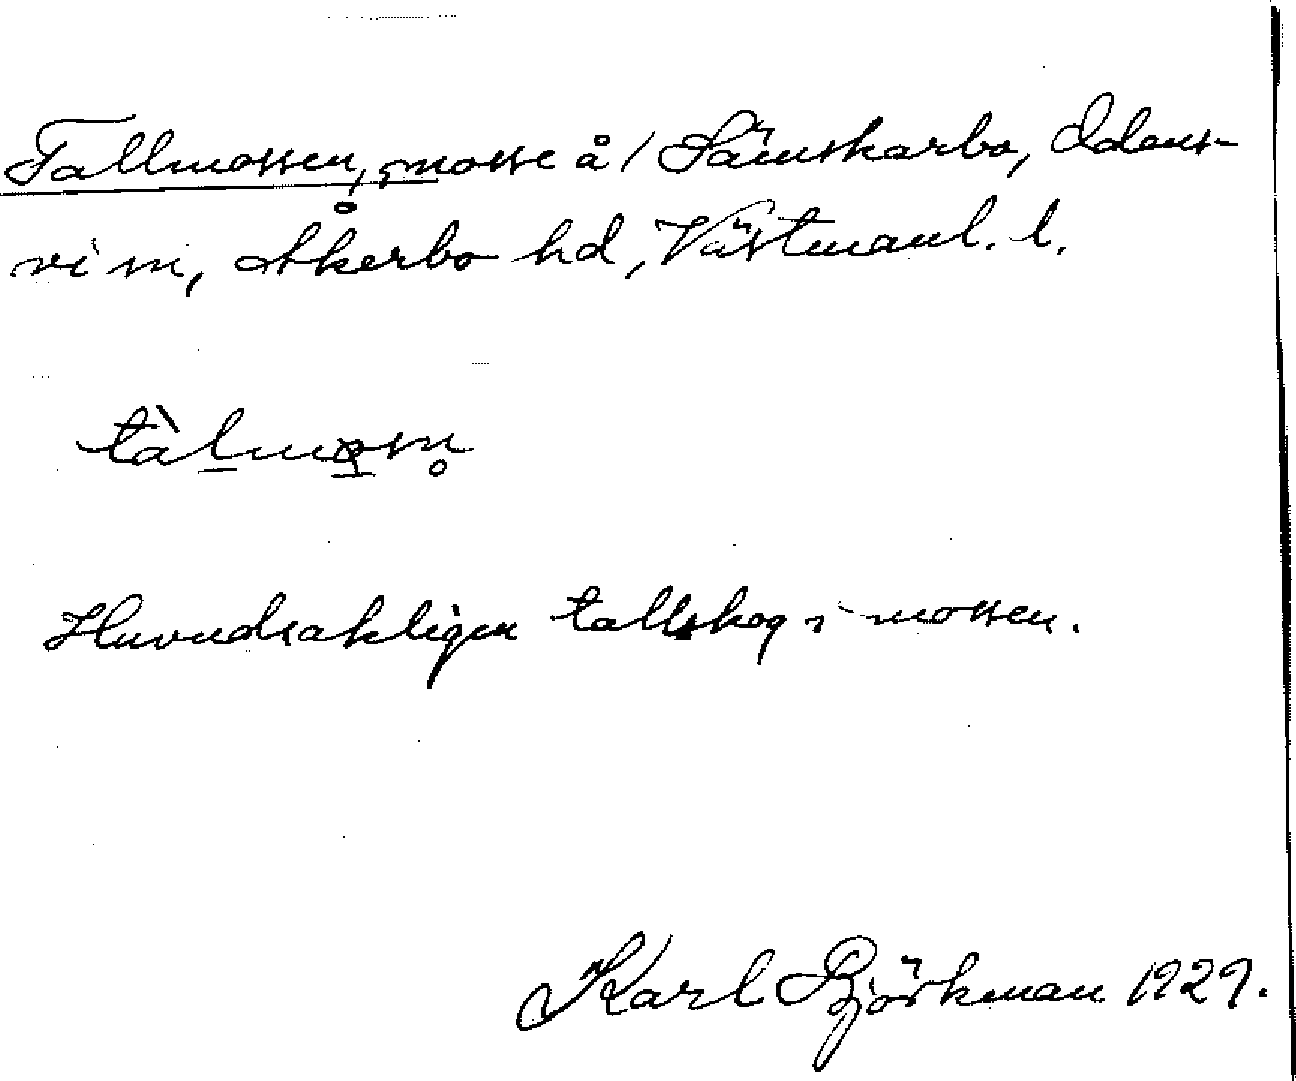 Tallmossen, mosse å / Sämskarbo, Odens-
vi sn, Åkerbo hd, Västmanl. l.
tàlmosn̥
Huvudsakligen tallskog i mossen.
Karl Björkman 1929.